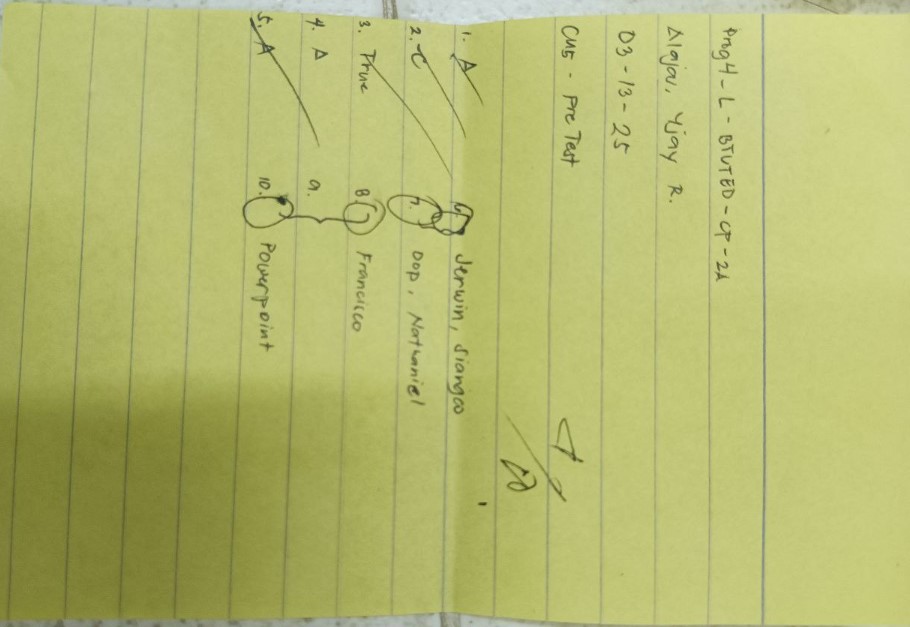 Prog4-L-BTVTED-CP-2A
Alaja, Yjay R.
03-13-25
CM5 - Pre Test
4/10
1. A
2. C
3. True
4. A
5. A
6. Jerwin, Siangco
7. Dop, Nathaniel
8. Francisco
9.
10. Powerpoint